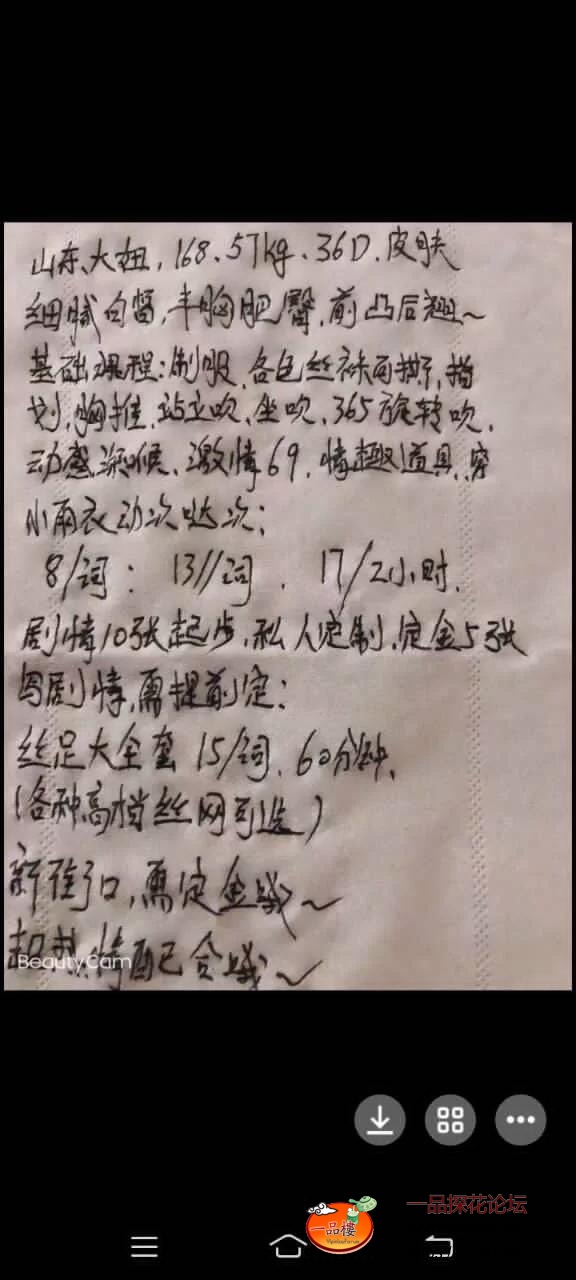 山东大妞，168、57kg、36D、皮肤
细腻白皙，丰胸肥臀，前凸后翘～
基础课程：制服、各色丝袜可撕、指
划、胸推、站立吹、坐吹、365旋转吹、
动感深喉、激情69、情趣道具、穿
小雨衣动次哒次：
8/词： 13//词、 17/2小时、
剧情10张起步，私人定制，定金5张
写剧情，需提前定：
丝足大全套 15/词、60分钟、
（各种高档丝网可选）
新街口，需定金哦～
情配合哦～
BeautyCam
一品探花论坛
一品楼